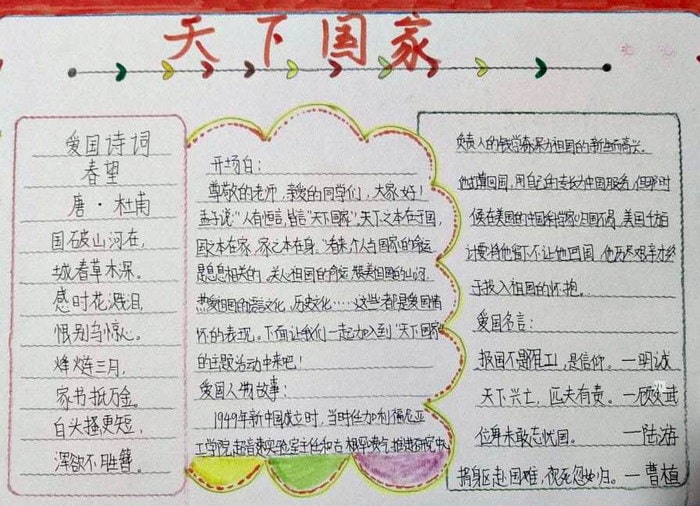 天下国家
爱国诗词
春望
唐·杜甫
国破山河在,
城春草木深。
感时花溅泪,
恨别鸟惊心。
烽火连三月,
家书抵万金。
白头搔更短,
浑欲不胜簪。
开场白:
尊敬的老师,亲爱的同学们,大家好!
孟子说:"人有恒言,皆言'天下国家'。天下之本在于国,
国之本在家,家之本在身。"看来,个人与国家的命运
是息息相关的。关心祖国的命运,赞美祖国的山河,
热爱祖国的语言文化、历史文化……这些都是爱国情
怀的表现。下面让我们一起加入到"天下国家"
的主题活动中来吧!
爱国人物故事:
1949年新中国成立时,当时任加利福尼亚
工学院超音速实验室主任和古根罕喷气推进研究中
负责人的钱学森深为祖国的新生而高兴。
他打算回国,用自己的专长为中国服务,但那时
候在美国的中国科学家归国不易,美国千方百
计要将他留下不让他回国,他历尽艰辛才终
于投入祖国的怀抱。
爱国名言:
报国不 是信仰。—明诚
天下兴亡,匹夫有责。—顾炎武
位卑未敢忘忧国。—陆游
捐躯赴国难,视死忽如归。—曹植